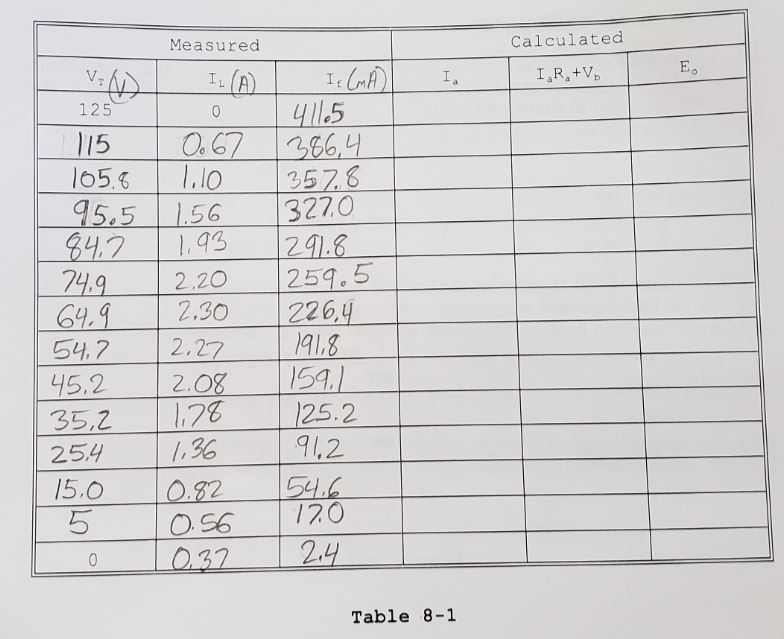 Measured Calculated
V_T (V) I_L (A) I_f (mA) I_a I_aR_a+V_b E_o
125 0 411.5
115 0.67 386.4
105.8 1.10 357.8
95.5 1.56 327.0
84.7 1.93 291.8
74.9 2.20 259.5
64.9 2.30 226.4
54.7 2.27 191.8
45.2 2.08 159.1
35.2 1.78 125.2
25.4 1.36 91.2
15.0 0.82 54.6
5 0.56 17.0
0 0.37 2.4
Table 8-1